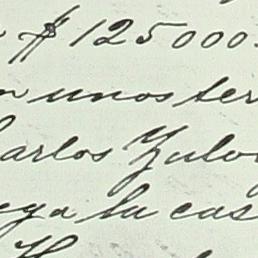 $125000
unos ter
arlos Zulo
ega la cas